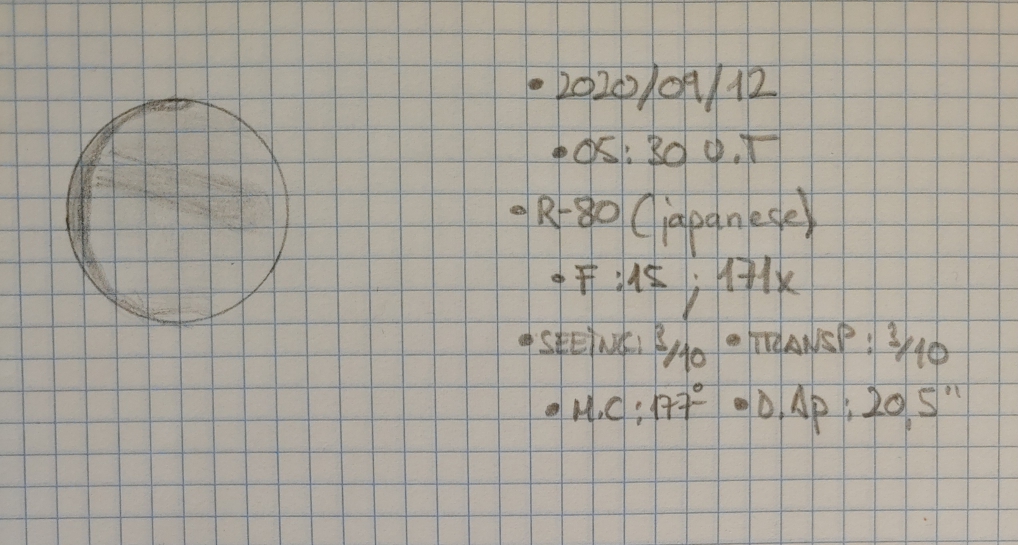 • 2020/09/12
• 05:30 U.T
• R-80 (japanese)
• F:15 ; 171x
• SEEING: 3/10 • TRANSP: 3/10
• M.C: 177º • D.Ap: 20,5"